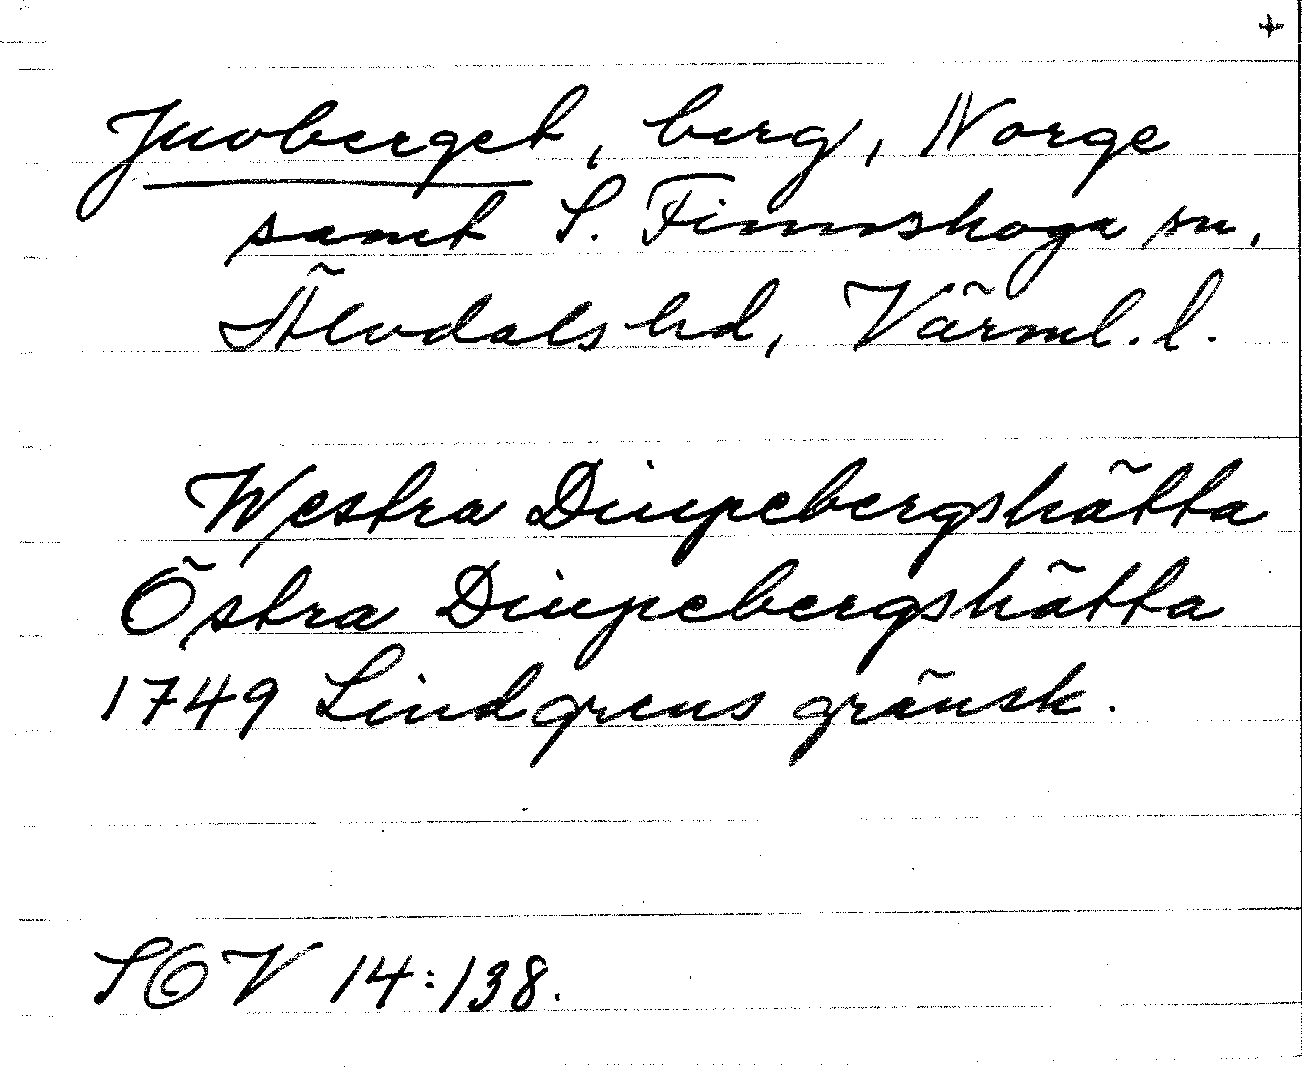 +
Juoberget, berg, Norge
samt S. Finnskoga sn,
Älvdals hd, Värml. l.
Westra Diupebergshätta
Östra Diupebergshätta
1749 Lindgrens gränsk.
SOV 14:138.